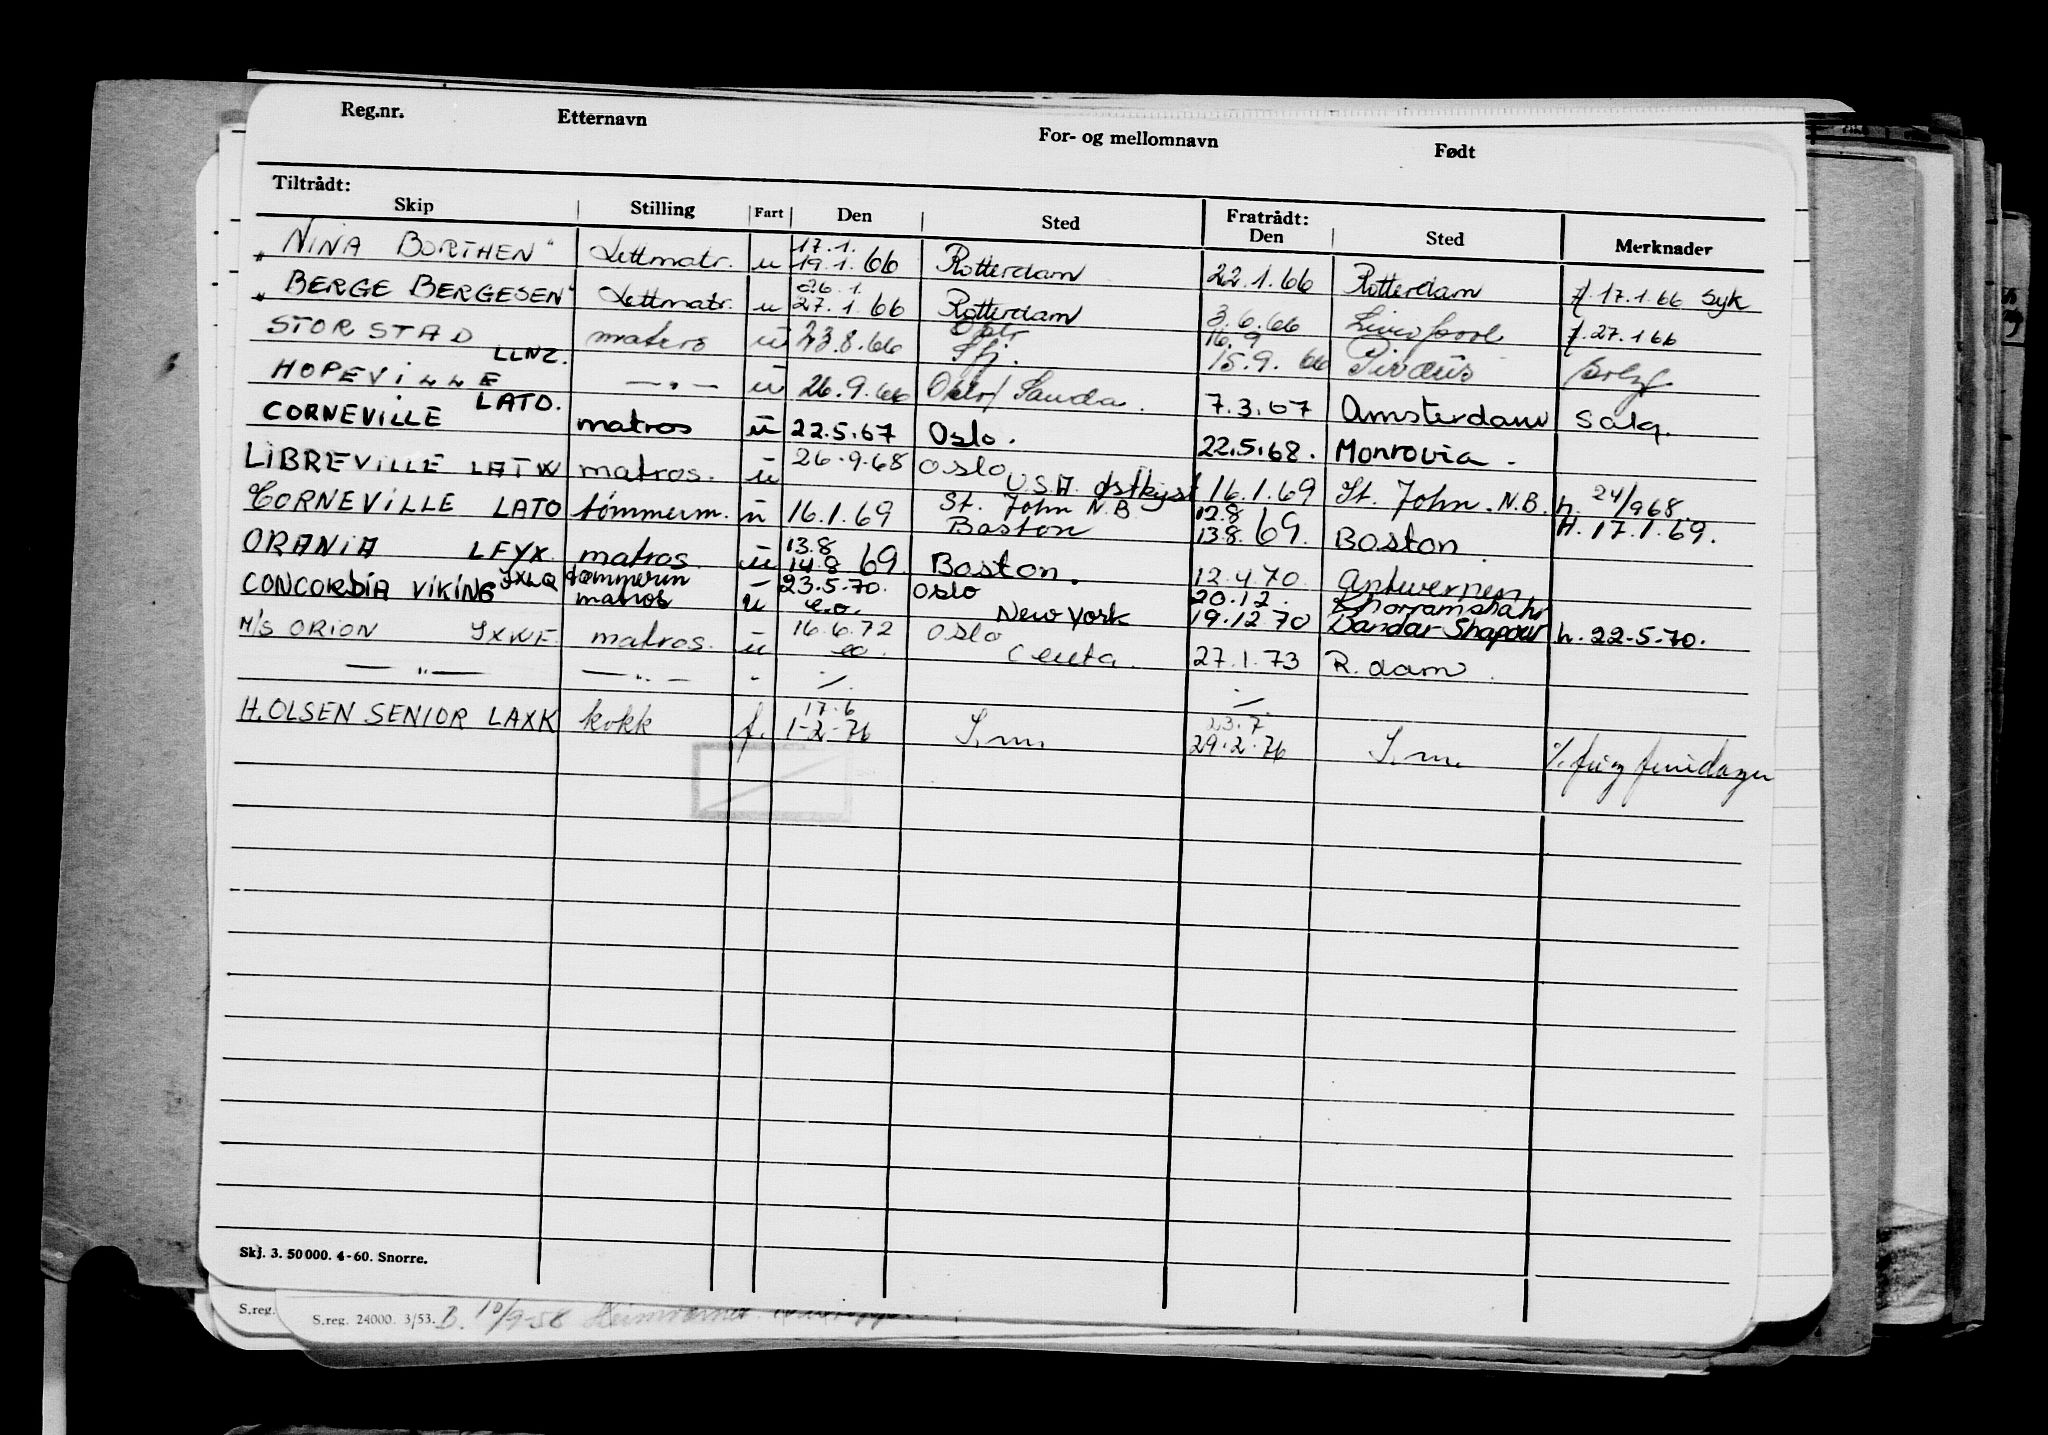 Reg.nr. Etternavn For- og mellomnavn Født
Tiltrådt: Fratrådt:
Skip Stilling Fart Den Sted Den Sted Merknader
"NINA BORTHEN" Lettmatr. u 17.1. 19.1.66 Rotterdam 22.1.66 Rotterdam f. 17.1.66 syk
"BERGE BERGESEN" Lettmatr. u 26.1 27.1.66 Rotterdam 3.6.66 Liverpool f. 27.1.66
STORSTAD LLNZ. matros u 23.8.66 Sfj. 16.9 15.9.66 Piræus
HOPEVILLE LATD. — " — u 26.9.66 Oslo/Sauda. 7.3.67 Amsterdam Salg.
CORNEVILLE matros u 22.5.67 Oslo. 22.5.68. Monrovia.
LIBREVILLE LATW matros. u 26.9.68 Oslo U.S.A. østkyst 16.1.69 St. John. N.B. h. 24/968.
CORNEVILLE LATO tømmerm. u 16.1.69 St. John N.B Boston 12.8 13.8.69. Boston H. 17.1.69.
ORANIA LFYX matros. u 13.8 14.8 69 Boston. 12.4.70. Antwerpen
CONCORDIA VIKING JXLQ tømmerm matros - u 23.5.70. e.o. Oslo New York 20.12. 19.12.70 Khorramshahr Bandar Shapour h. 22-5-70.
M/S ORION JXWF. matros. u 16.6.72 eo. Oslo Ceuta. 27.1.73 R.dam.
— " — — " — - ./. ./.
H. OLSEN SENIOR LAXK kokk f. 17.6 1-2-76 S.m. 23.7. 29.2.76 S.m.
Skj. 3. 50000. 4-60. Snorre.
S.reg. S.reg. 24000. 3/53. B. 10/9-58 Heimvernet.